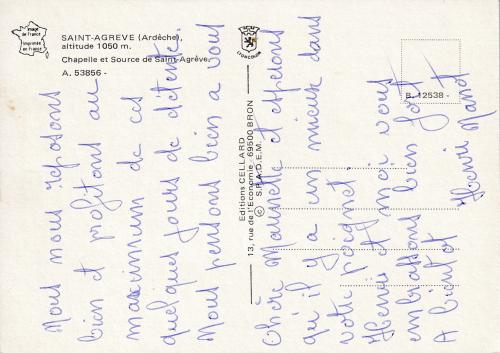 Image
de France
Imprimée
en France
SAINT-AGREVE (Ardèche)
altitude 1050 m.
Chapelle et Source de Saint-Agrève.
A. 53856 -
LYONCOLOR
B. 12538 -
Editions CELLARD
13, rue de l'Economie - 69500 BRON
© S.P.A.D.E.M.
Nous nous reposons
bien et profitons au
maximum de ces
quelques jours de détente.
Nous pensons bien a vous
Chère Maurisette et espérons
qu'il y a un mieux dans
votre poignet.
Henri et moi vous
embrassons bien fort
A bientot
Henri